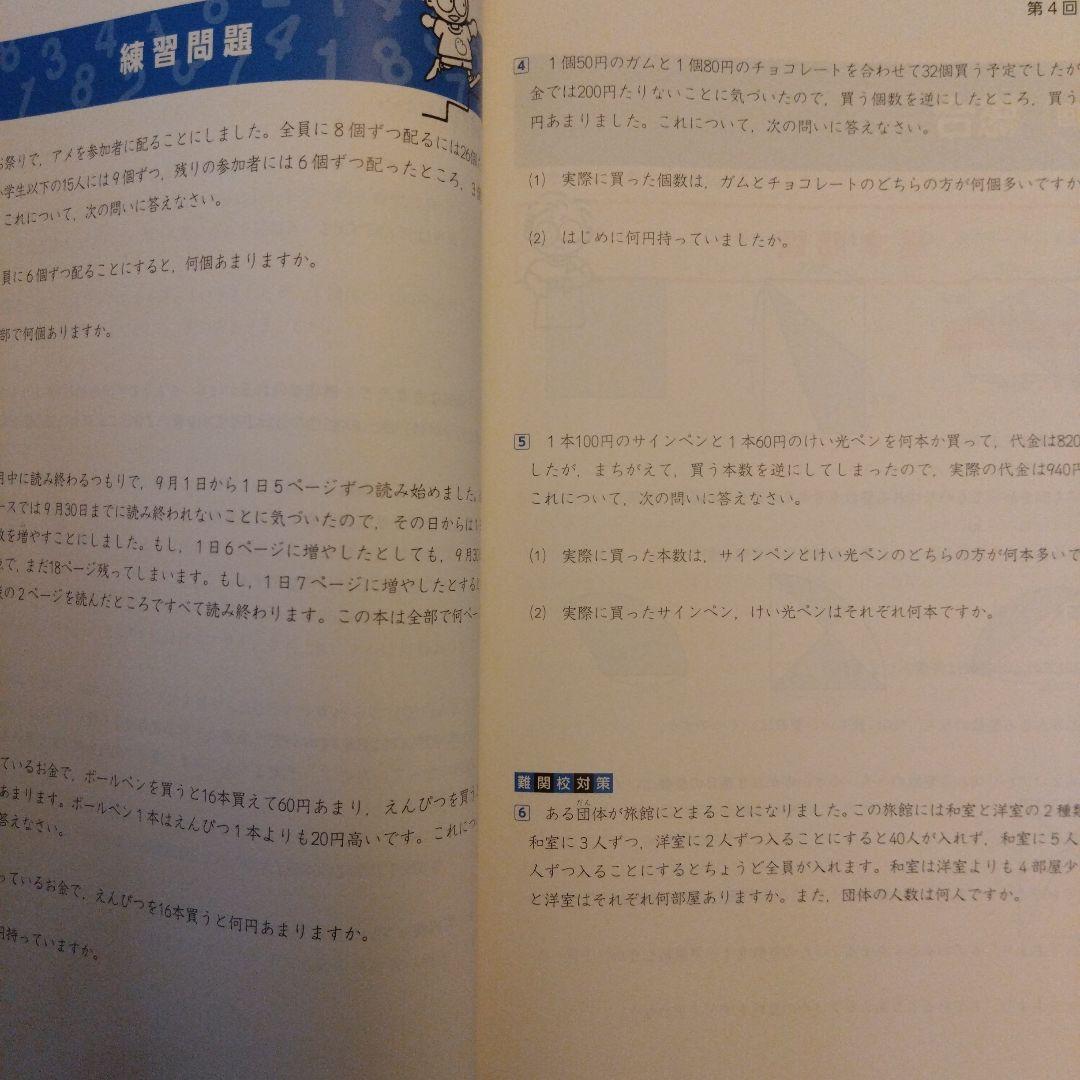 練習問題
お祭りで，アメを参加者に配ることにしました。全員に8個ずつ配るには26個
小学生以下の15人には9個ずつ，残りの参加者には6個ずつ配ったところ，3個
これについて，次の問いに答えなさい。
員に6個ずつ配ることにすると，何個あまりますか。
部で何個ありますか。
月中に読み終わるつもりで，9月1日から1日5ページずつ読み始めました。
ースでは9月30日までに読み終われないことに気づいたので，その日からは1
数を増やすことにしました。もし，1日6ページに増やしたとしても，9月30
で，まだ18ページ残ってしまいます。もし，1日7ページに増やしたとする
の2ページを読んだところですべて読み終わります。この本は全部で何ペー
ているお金で，ボールペンを買うと16本買えて60円あまり，えんぴつを買う
あまります。ボールペン1本はえんぴつ1本よりも20円高いです。これにつ
答えなさい。
っているお金で，えんぴつを16本買うと何円あまりますか。
円持っていますか。
第4回
4 1個50円のガムと1個80円のチョコレートを合わせて32個買う予定でしたが
金では200円たりないことに気づいたので，買う個数を逆にしたところ，買う
円あまりました。これについて，次の問いに答えなさい。
(1) 実際に買った個数は，ガムとチョコレートのどちらの方が何個多いですか
(2) はじめに何円持っていましたか。
5 1本100円のサインペンと1本60円のけい光ペンを何本か買って，代金は820
したが，まちがえて，買う本数を逆にしてしまったので，実際の代金は940円
これについて，次の問いに答えなさい。
(1) 実際に買った本数は，サインペンとけい光ペンのどちらの方が何本多いで
(2) 実際に買ったサインペン，けい光ペンはそれぞれ何本ですか。
難関校対策
6 ある団体が旅館にとまることになりました。この旅館には和室と洋室の2種類
和室に3人ずつ，洋室に2人ずつ入ることにすると40人が入れず，和室に5人
人ずつ入ることにするとちょうど全員が入れます。和室は洋室よりも4部屋少
と洋室はそれぞれ何部屋ありますか。また，団体の人数は何人ですか。